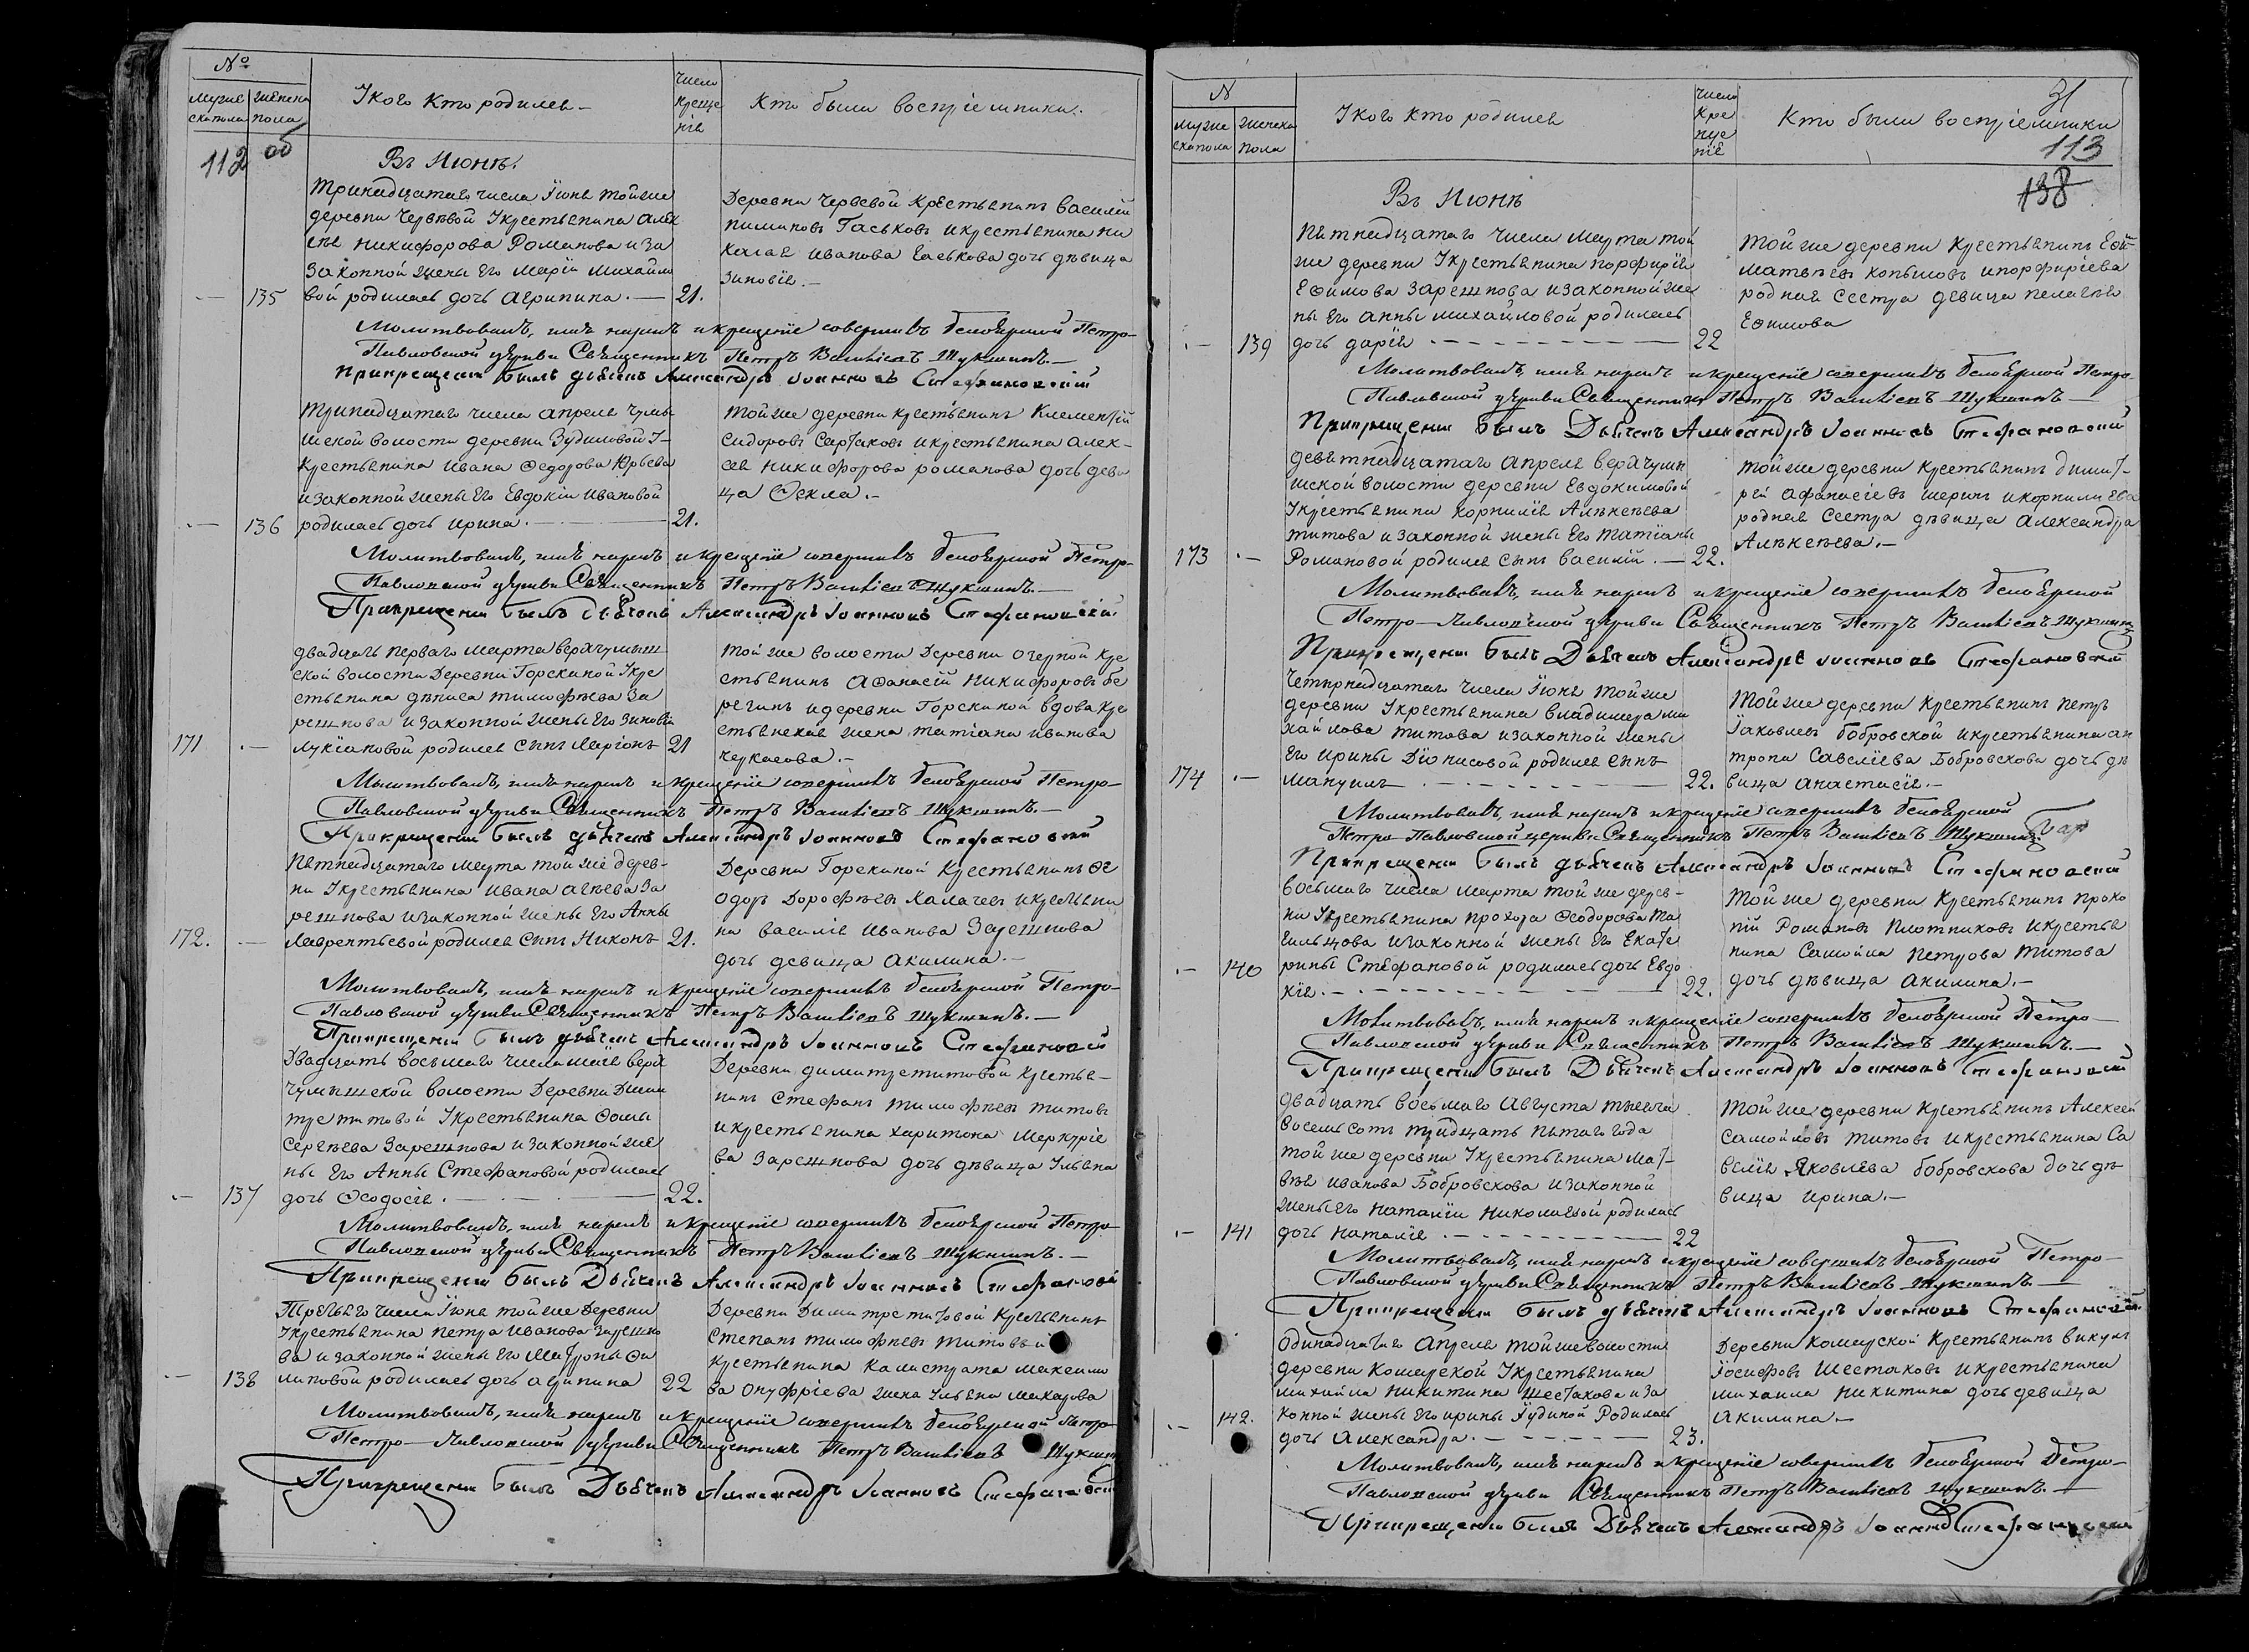 №
мужескапола
женска пола
У кого кто родился
число крещенія
Кто были воспріемники.
112 об
Въ Июнѣ.
Тринадцатаго числа Їюня тойже
деревни Червевой Укрестьянина Алек
сѣя Никифорова Романова и за
законной жены его Маріи Михайло
135 вой родилась дочь Агрипина. — 21.
Деревни Червевой крестьянинъ Василей
Пимановъ Гаськовъ и крестьянина Ни
колая Иванова Гаськова дочь дѣвица
Зиновія.—
Молитвовалъ, имя нарекъ и крещеніе совершилъ Белоярской Петро-
Павловской церкви Священникъ Петръ Васильевъ Шукшинъ.—
При крещеніи былъ дьячекъ Александръ Іоанновъ Стефановскій
Тринадцатаго числа апреля Чумы
шской волости деревни Зудиловой У-
крестьянина Ивана Федорова Юрьева
и законной жены Его Евдокіи Ивановой
136 родилась дочь Ирина. — 21.
Тойже деревни крестьянинъ Клементій
Сидоровъ Сартаковъ и крестьянина Алек-
сея Никифорова Романова дочь деви
ца Фекла.—
Молитвовалъ, имя нарекъ и крещеніе совершилъ Белоярской Петро-
Павловской церкви Священникъ Петръ Васильевъ Шукшинъ.—
При крещеніи былъ дьячекъ Александръ Іоанновъ Стефановскій
двадцать перваго марта верхчумыш
ской волости Деревни Горскиной Укре
стьянина Дѣниса Тимофѣева За
решнова и законной жены Его Зиновіи
171 Лукіановой родился сынъ Маріонъ 21
Той же волости Деревни Озерной кре
стьянинъ Афанасій Никифоровъ Бе
регинъ и деревни Горскиной вдова кре
стьянская жена Татіана Иванова
Черкасова.—
Молитвовалъ, имя нарекъ и крещеніе совершилъ Белоярской Петро-
Павловской церкви Священникъ Петръ Васильевъ Шукшинъ.—
При крещеніи былъ дьячекъ Александръ Іоанновъ Стефановскій
Пятнадцатаго марта тойже дерев-
ни Укрестьянина Ивана Агѣева За
решнова и законной жены Его Анны
172. Лаврентьевой родился сынъ Никонъ 21.
Деревни Горскиной Крестьянинъ Фе
одоръ Дорофѣевъ Калачевъ и крестьяни
на Василія Иванова Зарешнова
дочь девица Акилина.—
Молитвовалъ, имя нарекъ и крещеніе совершилъ Белоярской Петро-
Павловской церкви Священникъ Петръ Васильевъ Шукшинъ.—
При крещеніи былъ дьячекъ Александръ Іоанновъ Стефановскій
Двадцать восьмаго числа маія верх
чумышской волости Деревни Дими
тре титовой Укрестьянина Фомы
Сергѣева Зарешнова и законной же
ны Его Анны Стефановой родилась
137 дочь Феодосія. — 22.
Деревни димитретитовой крестья-
нинъ Стефанъ Тимофѣевъ Титовъ
и крестьянина Харитона Меркурiе
ва Зарешнова дочь дѣвица Ульяна
Молитвовалъ, имя нарекъ и крещеніе совершилъ Белоярской Петро-
Павловской церкви Священникъ Петръ Васильевъ Шукшинъ.—
При крещеніи былъ Дьячекъ Александръ Іоанновъ Стефановскій
Третьего числа Їюня тойже деревни
Укрестьянина Петра Иванова Зарешно
ва и законной жены Его Матроны Фи
138 липовой родилась дочь агрипина 22
Деревни Димитретитовой Крестьянинъ
Степанъ Тимофѣевъ Титовъ и
крестьянина Калистрата Максимо
ва Онуфріева жена Ульяна Макарова
Молитвовалъ, имя нарекъ и крещеніе совершилъ Белоярской Петро-
Петро-Павловской церкви Священникъ Петръ Васильевъ Шукшинъ
При крещеніи былъ Дьячекъ Александръ Іоанновъ Стефановскій
N
мужескапола
женска пола
У кого кто родился
число крещеніе
Кто были воспріемники
31
113
138
Въ Июнѣ
Пятнадцатаго числа Марта той
же деревни Укрестьянина Порфирія
Ефимова Зарешнова и законной же
ны Его Анны Михайловой родилась
139 дочь дарія — 22
Тойже деревни Крестьянинъ
Матвѣевъ Копыловъ и порфиріева
родная сестра девица Пелагія
Ефимова
Молитвовалъ, имя нарекъ и крещеніе совершилъ Белоярской Петро-
Павловской церкви Священникъ Петръ Васильевъ Шукшинъ —
При крещеніи былъ Дьячекъ Александръ Іоанновъ Стефановскій
девятнадцатаго Апреля Верхчумы
шской волости деревни Евдокимовой
Укрестьянина Корнилія Алѣксѣева
Титова и законной жены Его Татіаны
173 Романовой родился сынъ Василій. — 22.
Тойже деревни Крестьянинъ димит-
рій Афанасіевъ Шеринъ и корнилиева
родная сестра дѣвица Александра
Алѣксѣева.—
Молитвовалъ, имя нарекъ и крещеніе совершилъ Белоярской
Петро-Павловской церкви Священникъ Петръ Васильевъ Шукшинъ
При крещеніи былъ Дьячекъ Александръ Іоанновъ Стефановскій
Четырнадцатаго числа Їюня тойже
деревни Укрестьянина Владимера Ми
хайлова Титова и законной жены
Его Ирины Діонисовой родился сынъ
174 Мануилъ — 22.
Тойже деревни Крестьянинъ Петръ
Їаковлевъ Бобровской и крестьянина ан
тропа Савеліева Бобровскова дочь дѣ
вица Анастасія.—
Молитвовалъ, имя нарекъ и крещеніе совершилъ Белоярской
Петро-Павловской церкви Священникъ Петръ Васильевъ Шукшинъ
При крещеніи былъ дьячекъ Александръ Іоанновъ Стефановскій
восьмаго числа марта той же дерев-
ни Укрестьянина Прохора Феодорова Та
гильцова и законной жены Его Екате
140 рины Стефановой родилась дочь Евдо
кія. — 22.
Тойже деревни Крестьянинъ Проко
пій Романовъ Плотниковъ и крестья
нина Самойла Петрова Титова
дочь дѣвица Акилина.—
Молитвовалъ, имя нарекъ и крещеніе совершилъ Белоярской Петро-
Павловской церкви Священникъ Петръ Васильевъ Шукшинъ.—
При крещеніи былъ Дьячекъ Александръ Іоанновъ Стефановскій
двадцать восьмаго Августа тысяча
восемьсотъ тридцать пятаго года
тойже деревни Укрестьянина Мат-
вѣя Иванова Бобровскова и законной
жены Его Наталіи Николаевой родилась
141 дочь Наталія — 22
Тойже деревни Крестьянинъ Алексей
Самойловъ Титовъ и крестьянина Са
велія Яковлева Бобровскова дочь дѣ
вица Ирина.—
Молитвовалъ, имя нарекъ и крещеніе совершилъ Белоярской Петро-
Павловской церкви Священникъ Петръ Васильевъ Шукшинъ —
При крещеніи былъ дьячекъ Александръ Іоанновъ Стефановскій
Одинадцатаго Апреля тойжеволости
деревни Комарской Укрестьянина
Михайла Никитина Шестакова и за
142. конной жены Его Ирины Їудиной Родилась
дочь Александра. — 23.
Деревни Комарской Крестьянинъ Викулъ
Їосифовъ Шестаковъ и крестьянина
Михаила Никитина дочь девица
Акилина.—
Молитвовалъ, имя нарекъ и крещеніе совершилъ Белоярской Петро-
Павловской церкви Священникъ Петръ Васильевъ Шукшинъ.—
При крещеніи былъ Дьячекъ Александръ Іоаннъ Стефановскій